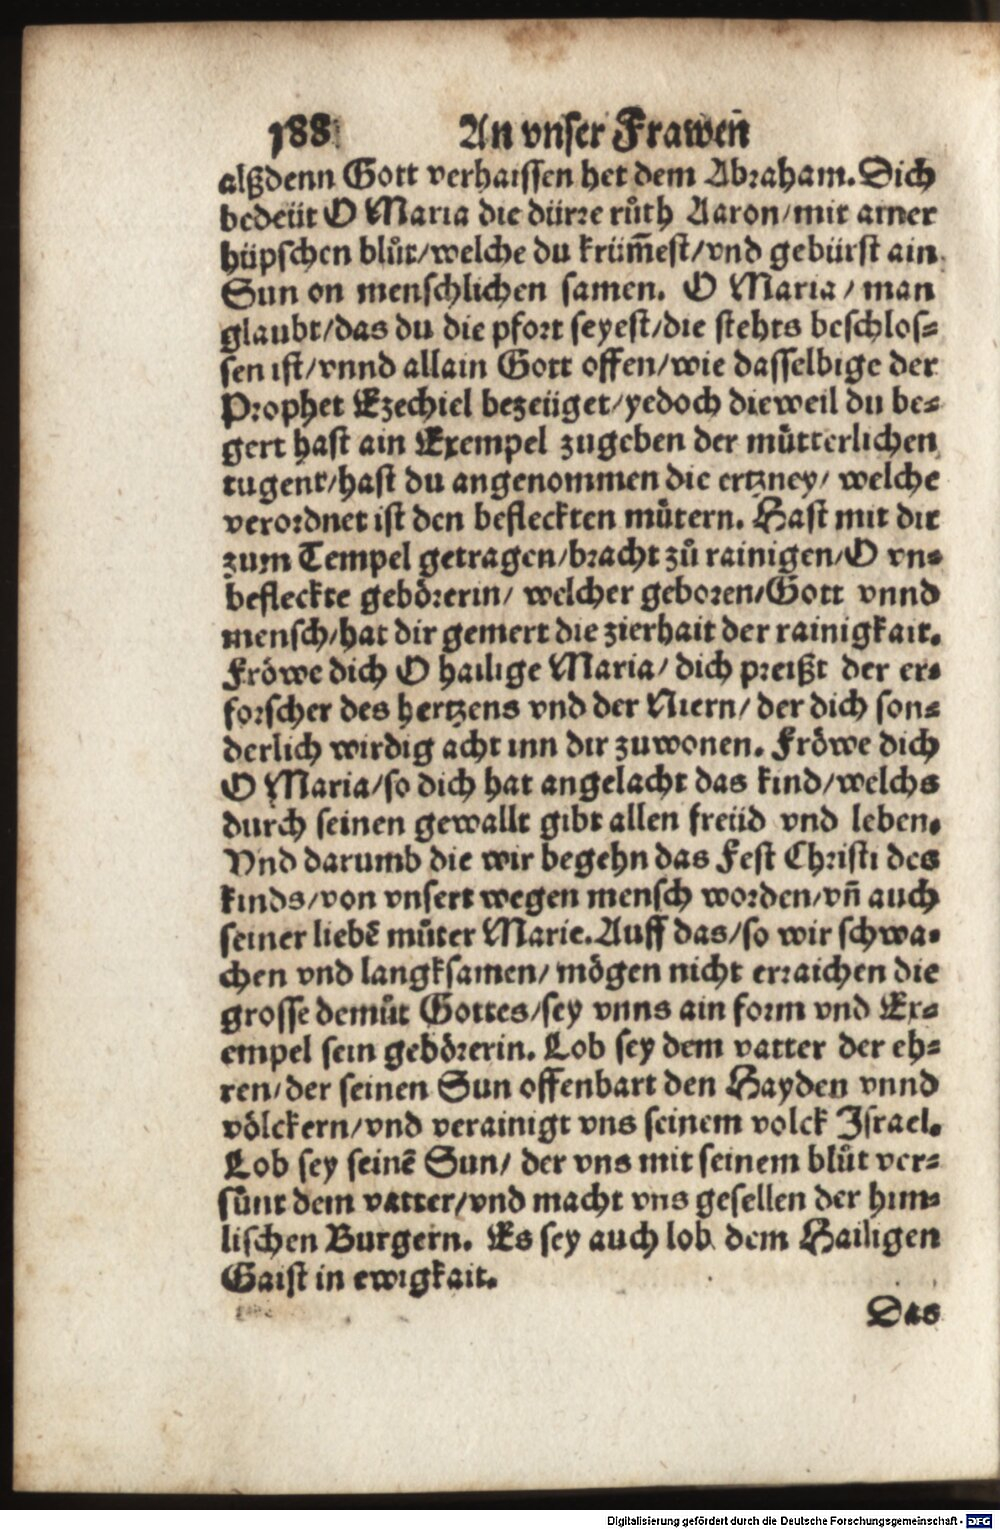 188 An vnser Frawen̄
alßdenn Gott verhaissen het dem Abraham. Dich
bedeüt O Maria die dürre růth Aaron/mit ainer
hüpschen blůt/welche du krüm̄est/vnd gebürst ain
Sun on menschlichen samen. O Maria / man
glaubt/das du die pfort seyest/die stehts beschlos=
sen ist/vnnd allain Gott offen/wie dasselbige der
Prophet Ezechiel bezeüget/yedoch dieweil du be=
gert hast ain Exempel zugeben der můtterlichen
tugent/hast du angenommen die ertzney/ welche
verordnet ist den befleckten můtern. Hast mit dir
zum Tempel getragen/bracht zů rainigen/O vn=
befleckte gebörerin/ welcher geboren/Gott vnnd
mensch/hat dir gemert die zierhait der rainigkait.
Fröwe dich O hailige Maria/ dich preißt der er=
forscher des hertzens vnd der Niern/ der dich son=
derlich wirdig acht inn dir zuwonen. Fröwe dich
O Maria/so dich hat angelacht das kind/welchs
durch seinen gewallt gibt allen freüd vnd leben.
Vnd darumb die wir begehn das Fest Christi des
kinds/von vnsert wegen mensch worden/vn̄ auch
seiner liebē můter Marie. Auff das/so wir schwa=
chen vnd langksamen/ mögen nicht erraichen die
grosse demůt Gottes/sey vnns ain form vnd Ex=
empel sein gebörerin. Lob sey dem vatter der eh=
ren/der seinen Sun offenbart den Hayden vnnd
völckern/vnd verainigt vns seinem volck Israel.
Lob sey seinē Sun/ der vns mit seinem blůt ver=
sůnt dem vatter/vnd macht vns gesellen der him=
lischen Burgern. Es sey auch lob dem Hailigen
Gaist in ewigkait.
Das
Digitalisierung gefördert durch die Deutsche Forschungsgemeinschaft - DFG